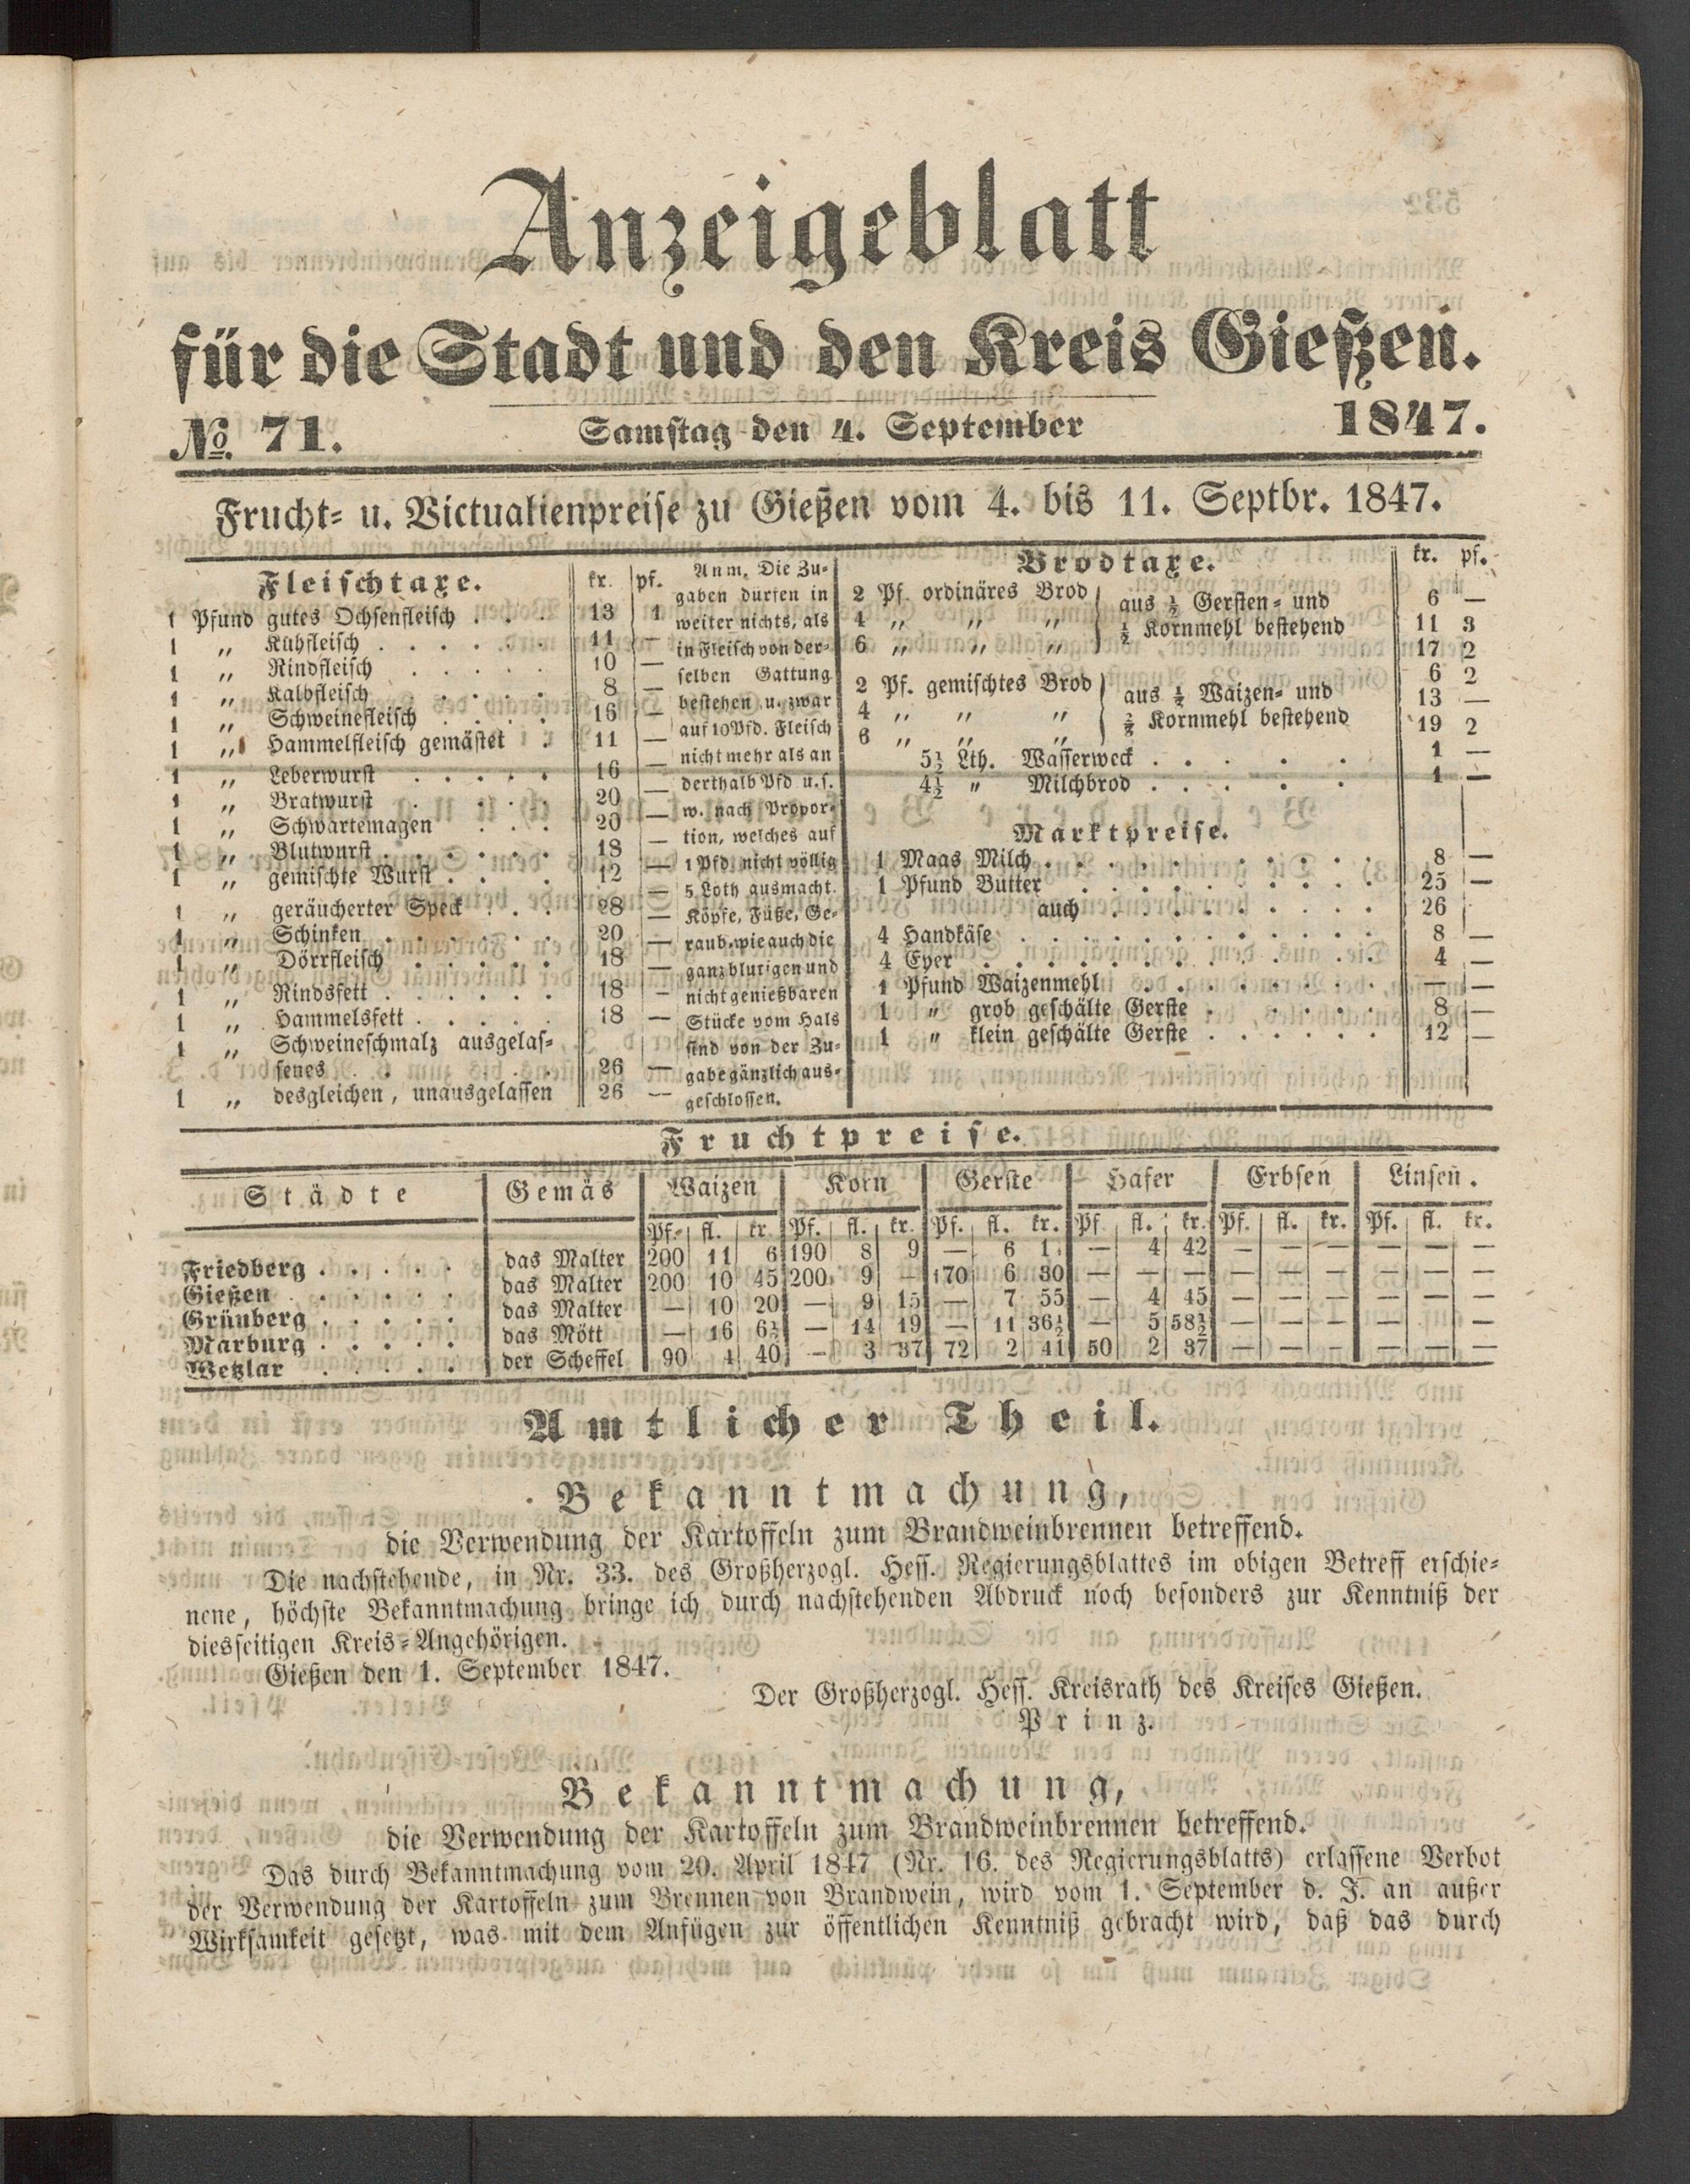 Anzeigeblatt
für die Stadt und den Kreis Gießen.
No. 71. Samstag den 4. September 1847.
Frucht- u. Victualienpreise zu Gießen vom 4. bis 11. Septbr. 1847.
Fleischtaxe. kr. pf.
1 Pfund gutes Ochsenfleisch . . . 13 1
1 „ Kuhfleisch . . . . . . 11 —
1 „ Rindfleisch . . . . . 10 —
1 „ Kalbfleisch . . . . . 8 —
1 „ Schweinefleisch . . . . 16 —
1 „ Hammelfleisch gemästet . 11 —
1 „ Leberwurst . . . . . 16 —
1 „ Bratwurst . . . . . 20 —
1 „ Schwartemagen . . . 20 —
1 „ Blutwurst . . . . . . 18 —
1 „ gemischte Wurst . . . . 12 —
1 „ geräucherter Speck . . . 28 —
1 „ Schinken . . . . . . 20 —
1 „ Dörrfleisch . . . . . 18 —
1 „ Rindsfett . . . . . . 18 —
1 „ Hammelsfett . . . . . 18 —
1 „ Schweineschmalz ausgelas-
senes . . . . . . . 26 —
1 „ desgleichen, unausgelassen 26 —
Anm. Die Zu-
gaben dürfen in
weiter nichts, als
in Fleisch von der-
selben Gattung
bestehen u. zwar
auf 10 Pfd. Fleisch
nicht mehr als an
derthalb Pfd u. s.
w. nach Propor-
tion, welches auf
1 Pfd. nicht völlig
5 Loth ausmacht.
Köpfe, Füße, Ge-
raub, wie auch die
ganz blutigen und
nicht genießbaren
Stücke vom Hals
sind von der Zu-
gabe gänzlich aus-
geschlossen.
Brodtaxe. kr. pf.
2 Pf. ordinäres Brod aus ½ Gersten- und 6 —
4 „ „ „ ½ Kornmehl bestehend 11 3
6 „ „ „ 17 2
2 Pf. gemischtes Brod aus Waizen- und 6 2
4 „ „ „ Kornmehl bestehend 13 —
6 „ „ „ 19 2
5½ Lth. Wasserweck . . . . . 1 —
4½ „ Milchbrod . . . . . 1 —
Marktpreise.
1 Maas Milch . . . . . . . . . . 8 —
1 Pfund Butter . . . . . . . . . 25 —
auch . . . . . . . . . 26
4 Handkäse . . . . . . . . . . . 8 —
4 Eyer . . . . . . . . . . . . 4 —
1 Pfund Waizenmehl . . . . . . . . — —
1 „ grob geschälte Gerste . . . . . . 8 —
1 „ klein geschälte Gerste . . . . . . 12 —
Fruchtpreise.
Städte Gemäs Waizen Korn Gerste Hafer Erbsen Linsen.
Pf. fl. kr. Pf. fl. kr. Pf. fl. kr. Pf. fl. kr. Pf. fl. kr. Pf. fl. kr.
Friedberg . . . . . das Malter 200 11 6 190 8 9 — 6 1 — 4 42 — — — — — —
Gießen . . . . . das Malter 200 10 45 200 9 — 170 6 30 — — — — — — — — —
Grünberg . . . . . das Malter — 10 20 — 9 15 — 7 55 — 4 45 — — — — — —
Marburg . . . . . das Mött — 16 6½ — 14 19 — 11 36½ — 5 58½ — — — — — —
Wetzlar . . . . . der Scheffel 90 4 40 — 3 37 72 2 41 50 2 37 — — — — — —
Amtlicher Theil.
Bekanntmachung,
die Verwendung der Kartoffeln zum Brandweinbrennen betreffend.
Die nachstehende, in Nr. 33. des Großherzogl. Hess. Regierungsblattes im obigen Betreff erschie-
nene, höchste Bekanntmachung bringe ich durch nachstehenden Abdruck noch besonders zur Kenntniß der
diesseitigen Kreis-Angehörigen.
Gießen den 1. September 1847.
Der Großherzogl. Hess. Kreisrath des Kreises Gießen.
Prinz.
Bekanntmachung,
die Verwendung der Kartoffeln zum Brandweinbrennen betreffend.
Das durch Bekanntmachung vom 20. April 1847 (Nr. 16. des Regierungsblatts) erlassene Verbot
der Verwendung der Kartoffeln zum Brennen von Brandwein, wird vom 1. September d. J. an außer
Wirksamkeit gesetzt, was mit dem Anfügen zur öffentlichen Kenntniß gebracht wird, daß das durch